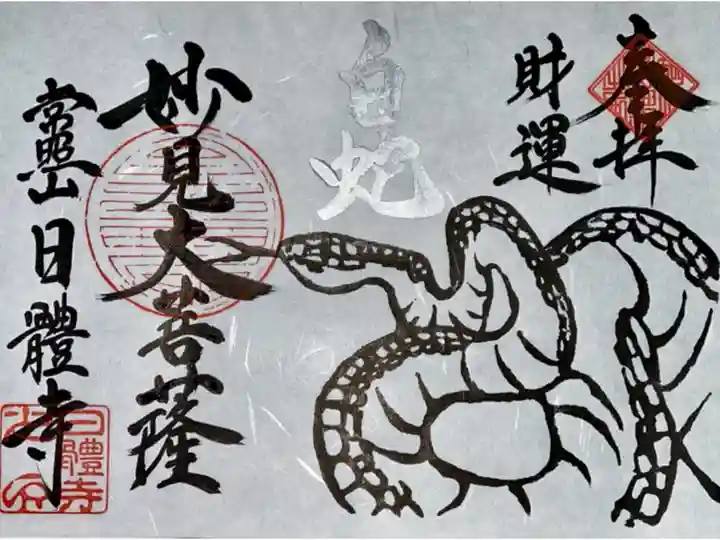 奉拝
財運
白蛇
妙見大菩薩
常照山日體寺
日體寺